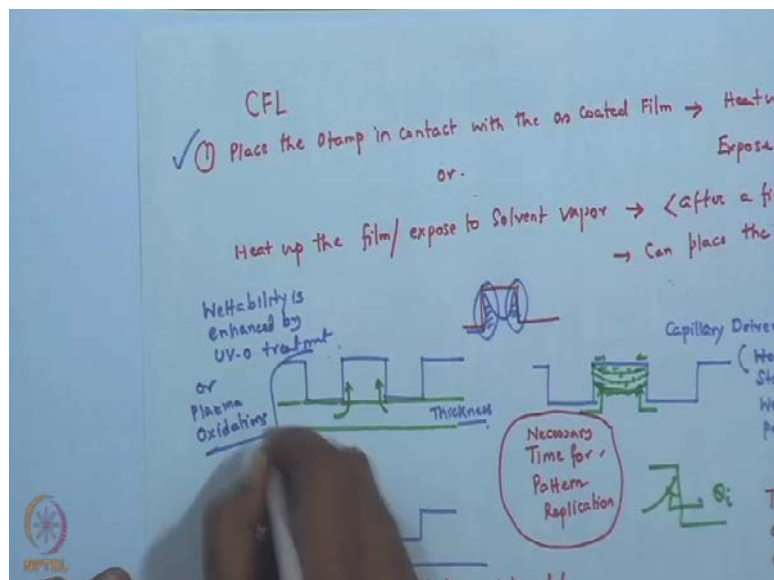 CFL
① Place the Stamp in Contact with the as Coated Film → Heat u
Expose
or.
Heat up the film/ expose to Solvent vapor → <after a fi
→ Can place the
Wettability is
enhanced by
UV-O treatment.
or
Plasma
Oxidations
Thickness
Capillary Driven
Necessary
Time for
Pattern
Replication
θi
NPTEL